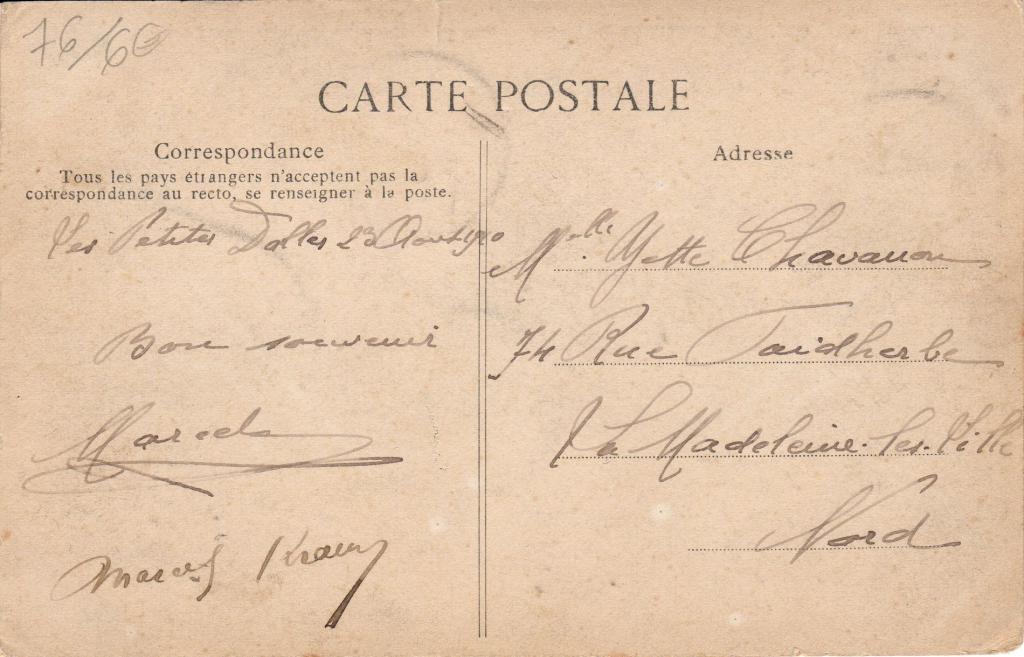 76/60
CARTE POSTALE
Correspondance
Tous les pays étrangers n'acceptent pas la
correspondance au recto, se renseigner à la poste.
Les Petites Dalles 23 Aout 1910
Bon souvenir
Marcel
Marcel
Adresse
Melle Yette Chavanon
74 Rue Faidherbe
La Madeleine-les-Lille
Nord